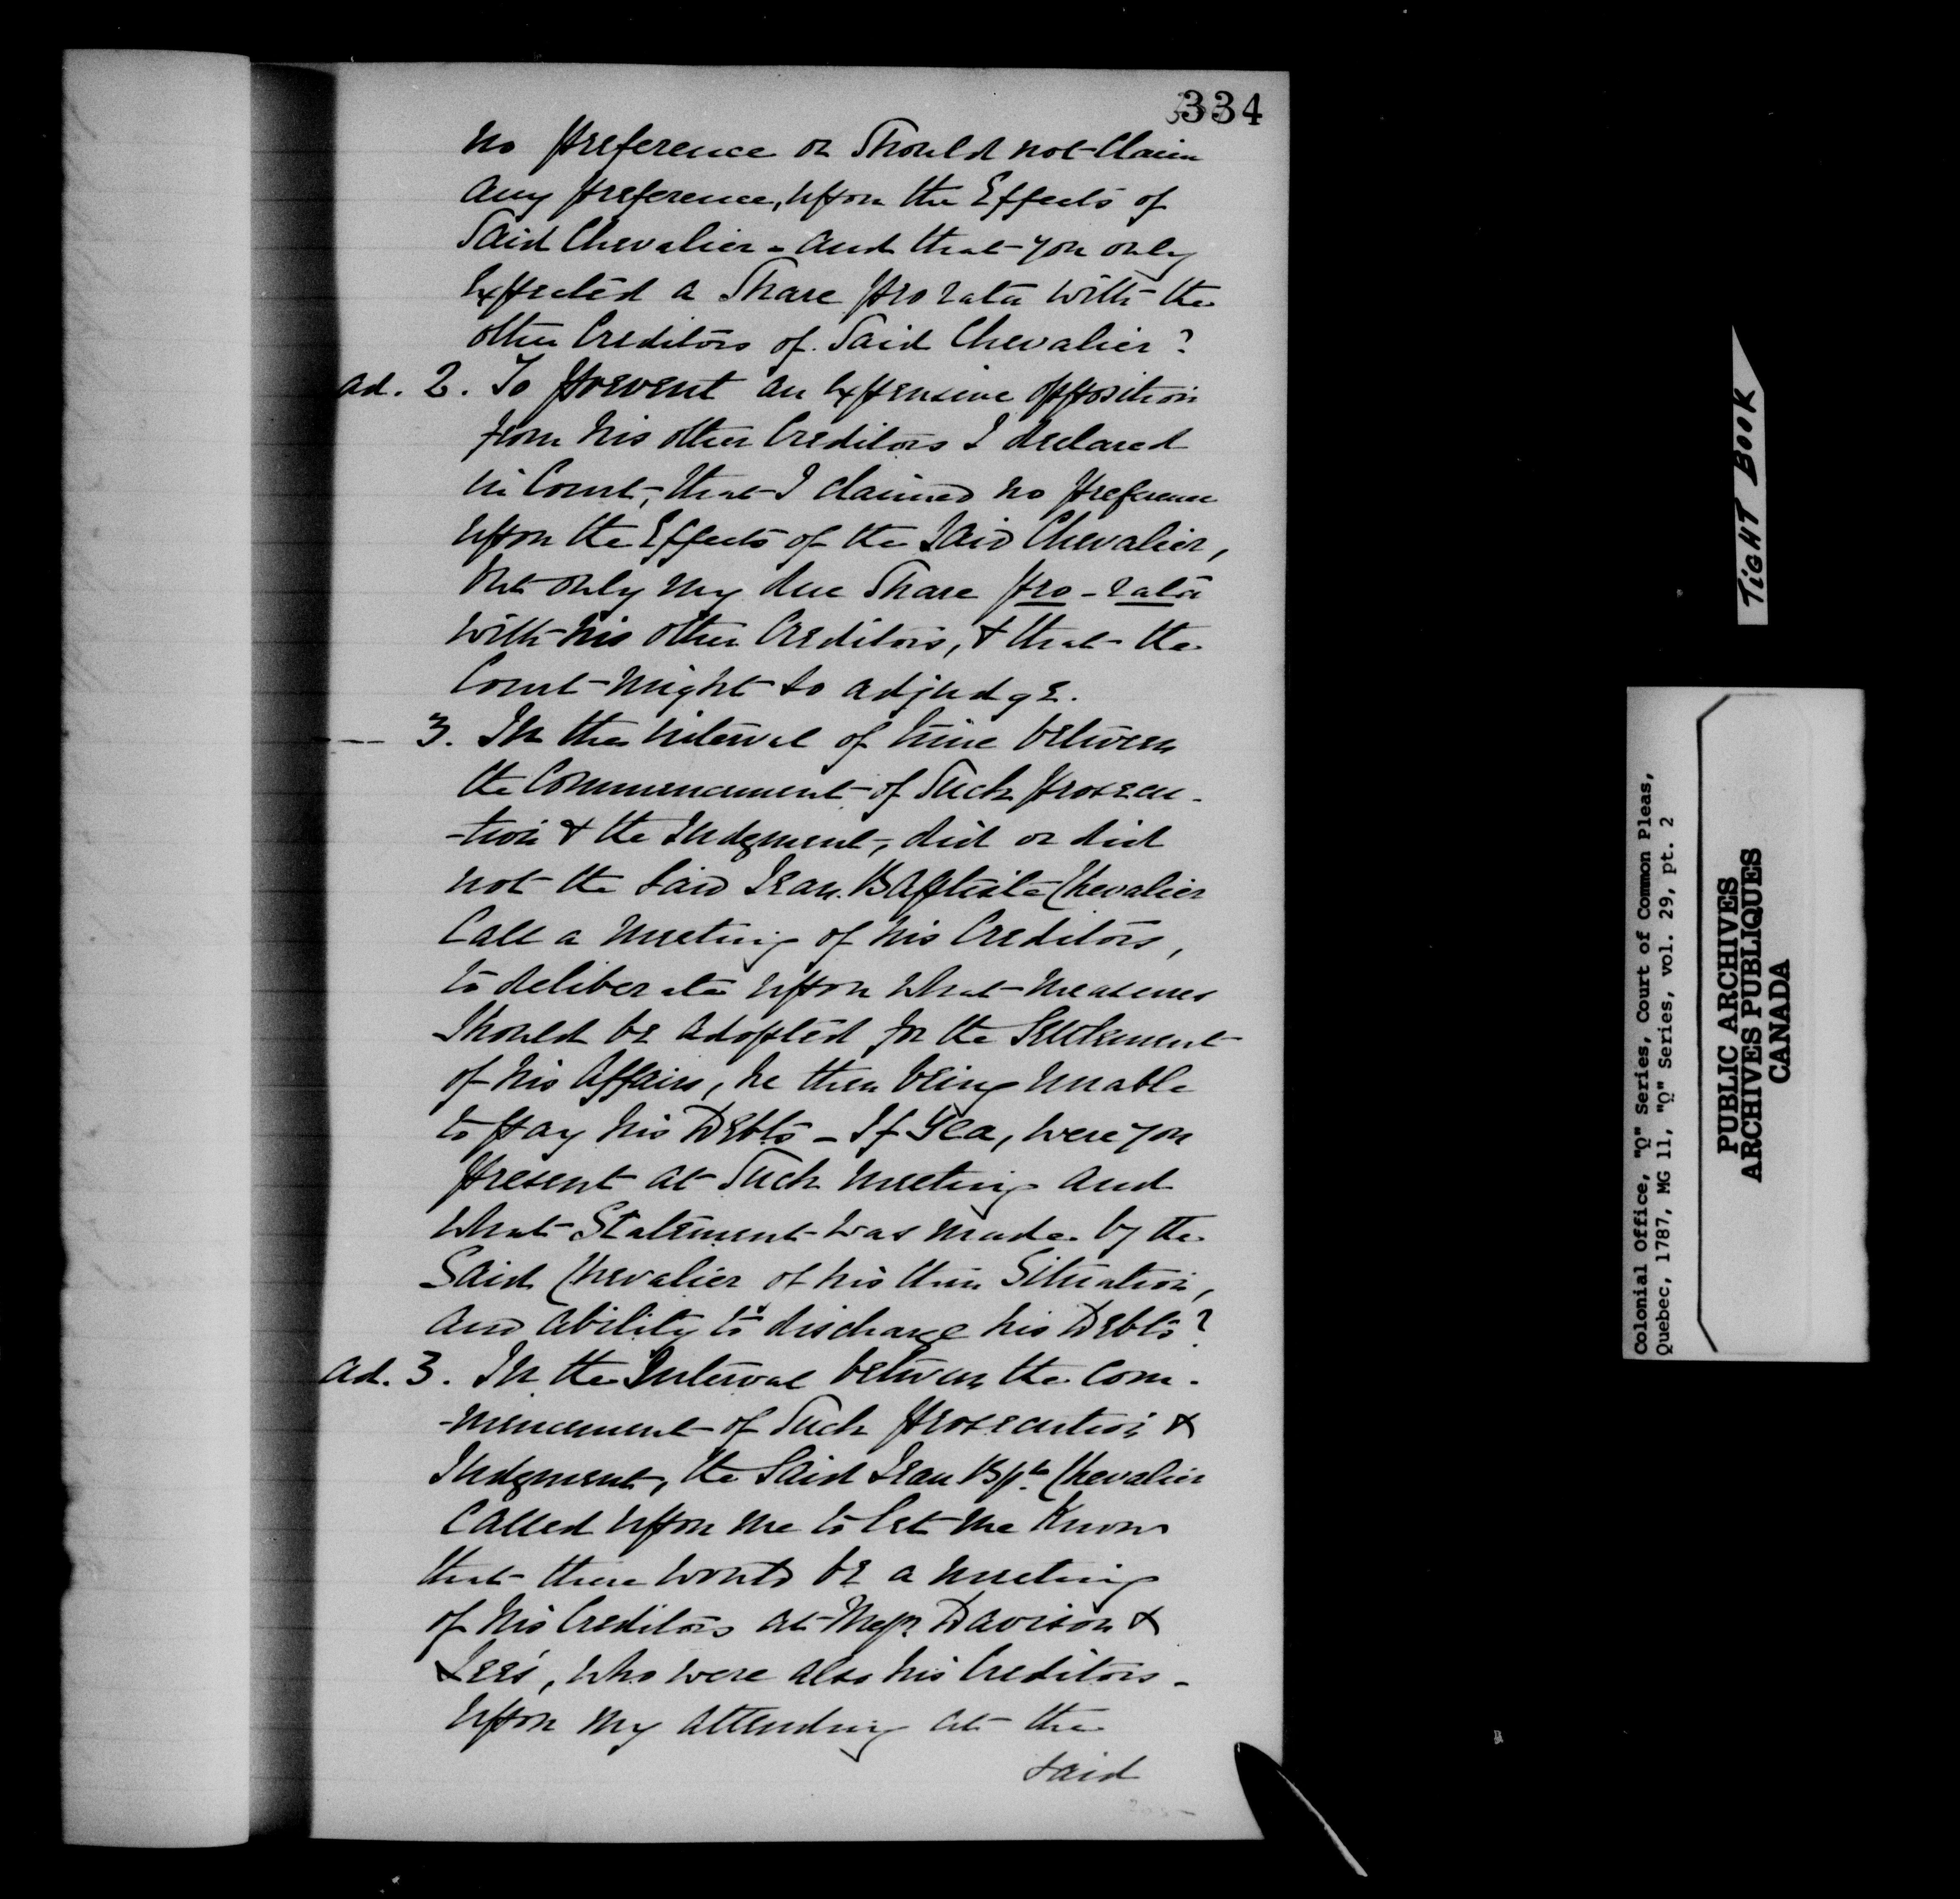 334
no preference or Should not Claim
any preference, upon the Effects of
Said Chevalier - and that you only
Expected a Share pro rata with the
other Creditors of Said Chevalier?
ad. 2. To prevent an Expensive opposition
from his other Creditors I declared
in Court, that I claimed no preference
upon the Effects of the Said Chevalier,
but only my due Share pro-rata
with his other Creditors, & that the
Court might so adjudge.
— 3. In the interval of time between
the Commencement of Such prosecu-
-tion & the Judgment, did or did
not the Said Jean Baptiste Chevalier
Call a meeting of his Creditors,
to deliberate upon what measures
Should be adopted for the Settlement
of his Affairs, he then being unable
to pay his Debts - If Yea, were you
present at Such meeting and
what Statement was made by the
Said Chevalier of his then Situation,
and ability to discharge his Debts?
ad. 3. In the Interval between the Com-
-mencement of Such prosecution &
Judgment, the Said Jean Bpte Chevalier
Called upon me to let me Know
that there would be a meeting
of his Creditors at Messrs Davison &
Lees', who were also his Creditors -
Upon my attending at the
said
TIGHT BOOK
Colonial Office, "Q" Series, Court of Common Pleas,
Quebec, 1787, MG 11, "Q" Series, vol. 29, pt. 2
PUBLIC ARCHIVES
ARCHIVES PUBLIQUES
CANADA